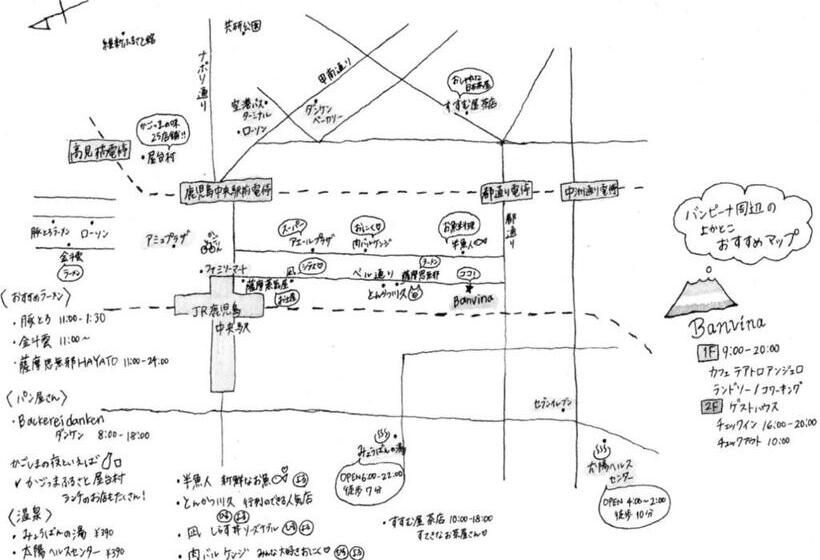 維新ふるさと館
共研公園
ナポリ通り
甲南通り
おしゃれな
日本茶屋
すすむ屋茶店
空港バス
ターミナル
ローソン
ダンケン
ベーカリー
かごっまの味
25店舗!!
高見橋電停
屋台村
鹿児島中央駅前電停
都通り電停
中洲通り電停
都通り
豚とろラーメン
ローソン
金斗雲
ラーメン
アミュプラザ
かんらんしゃ
スーパー
アエールプラザ
おにく
肉バルケンジ
お魚料理
半魚人
ファミリーマート
凪
シラス
ベル通り
ラーメン
薩摩思無邪
ココ!
とんかつ川久
Banvina
JR鹿児島
中央駅
セブンイレブン
みょうばんの湯
OPEN 6:00-22:00
徒歩7分
太陽ヘルス
センター
OPEN 4:00~2:00
徒歩10分
バンビーナ周辺の
よかとこ
おすすめマップ
Banvina
1F 9:00-20:00
カフェ テアトロアンジェロ
ランドリー/コワーキング
2F ゲストハウス
チェックイン 16:00-20:00
チェックアウト 10:00
〈おすすめラーメン〉
・豚とろ 11:00-1:30
・金斗雲 11:00~
・薩摩思無邪HAYATO 11:00-24:00
〈パン屋さん〉
・Backereidanken
ダンケン 8:00-18:00
かごしまの夜といえば
✓かごっまふるさと屋台村
ランチのお店もたくさん!
〈温泉〉
・みょうばんの湯 ¥390
・太陽ヘルスセンター ¥390
・半魚人 新鮮なお魚 よる
・とんかつ川久 行列のできる人気店
ひる よる
・凪 しらす丼 リーズナブル ひる よる
・肉バル ケンジ みんな大好きおにく ひる よる
・すすむ屋 茶店 10:00-18:00
すてきなお茶屋さん